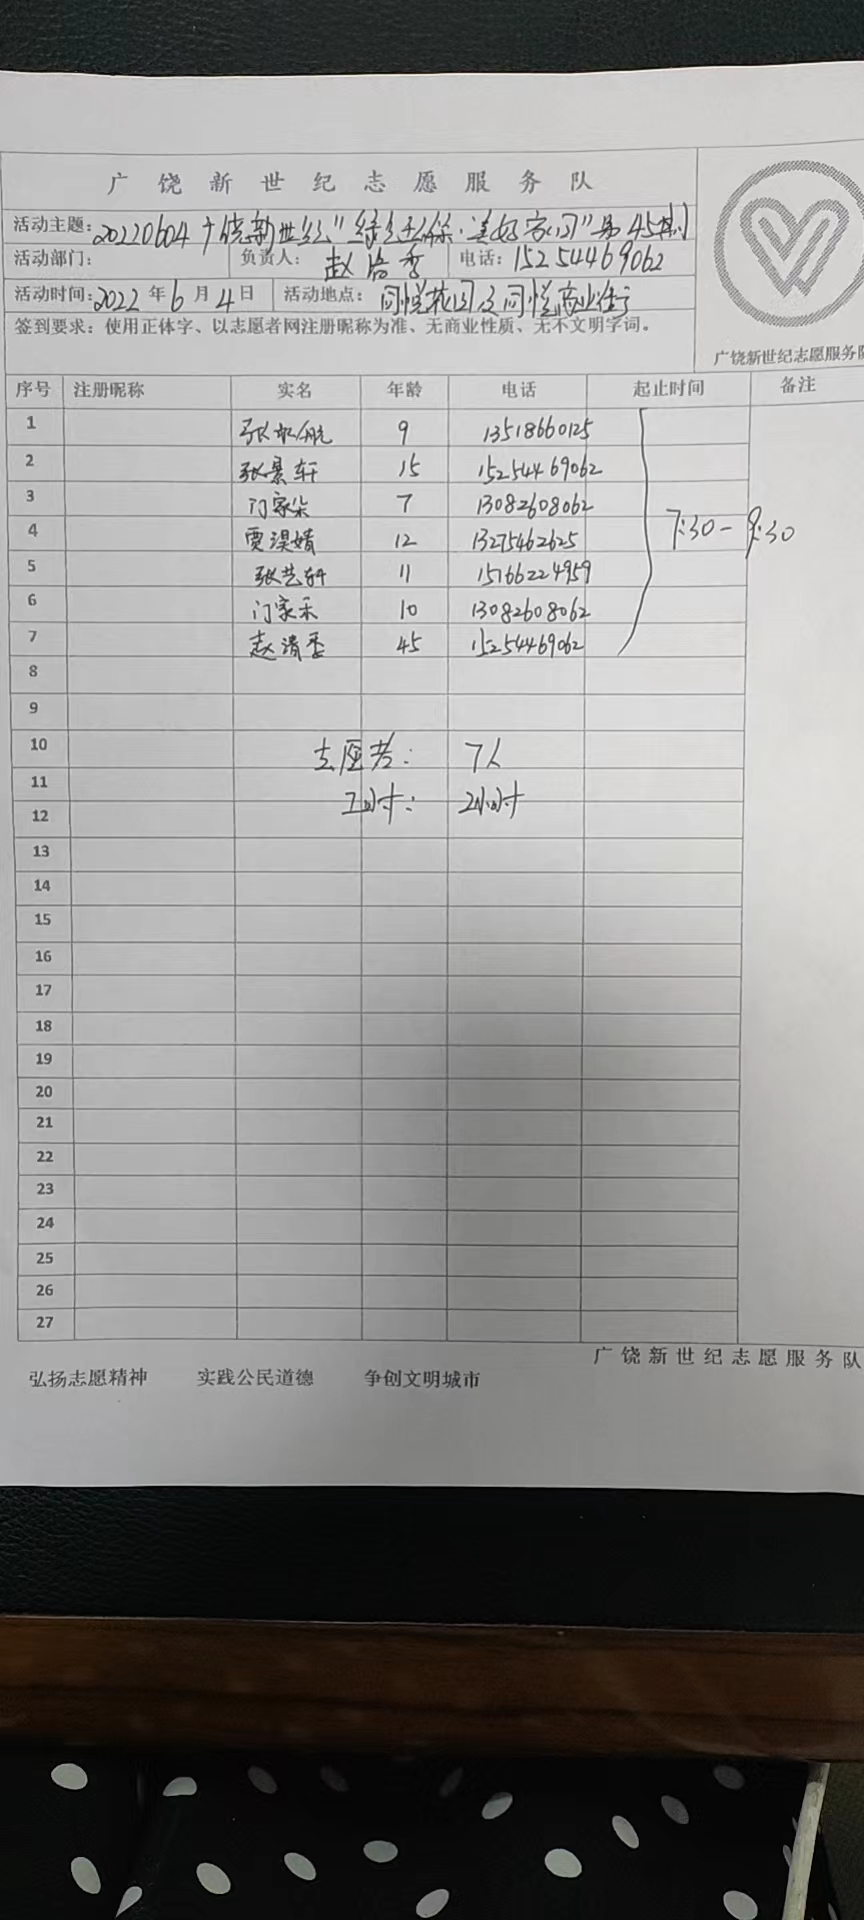 广饶新世纪志愿服务队
活动主题: 20220604广饶新世纪"绿色环保·美好家园"第45期
活动部门: 负责人: 赵清香 电话: 15254469062
活动时间: 2022年6月4日 活动地点: 同悦花园及同悦商业街
签到要求：使用正体字、以志愿者网注册昵称为准、无商业性质、无不文明字词。
广饶新世纪志愿服务队
序号 注册昵称 实名 年龄 电话 起止时间 备注
1 张 航 9 13518660125
2 张景轩 15 15254469062
3 门家朵 7 13082608062
4 贾淏婧 12 13275462625
5 张艺轩 11 15166224959
6 门家禾 10 13082608062
7 赵清香 45 15254469062
7:30-9:30
8
9
10 志愿者: 7人
11
工时: 2小时
12
13
14
15
16
17
18
19
20
21
22
23
24
25
26
27
广饶新世纪志愿服务队
弘扬志愿精神 实践公民道德 争创文明城市